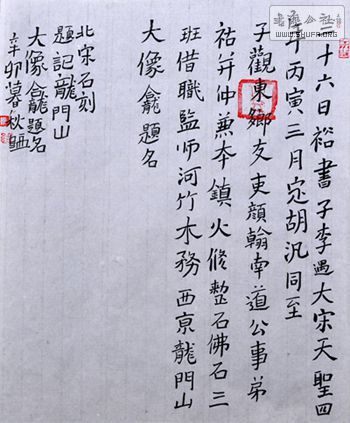 十六日裕書子李遇大宋天聖四
年丙寅三月定胡汎同至
子觀東鄉友吏顔翰南道公事弟
祐并仲兼本鎮火修整石佛石三
班借職監师河竹木務西亰龍門山
大像龕題名
北宋石刻
題記龍門山
大像龕題名
辛卯暮秋
WWW.SHUFA.ORG